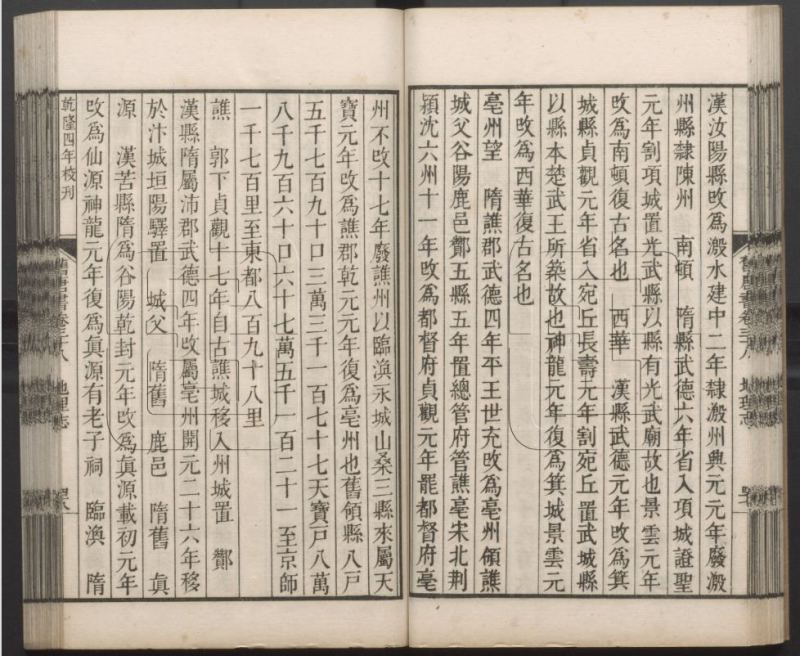 漢汝陽縣改爲溵水建中二年隸溵州興元元年廢溵
州縣隸陳州　南頓　隋縣武德六年省入項城證聖
元年割項城置光武縣以縣有光武廟故也景雲元年
改爲南頓復古名也　西華　漢縣武德元年改爲箕
城縣貞觀元年省入宛丘長壽元年割宛丘置武城縣
以縣本楚武王所築故也神龍元年復爲箕城景雲元
年改爲西華復古名也
亳州望　隋譙郡武德四年平王世充改爲亳州領譙
城父谷陽鹿邑酇五縣五年置總管府管譙亳宋北荆
潁沈六州十一年改爲都督府貞觀元年罷都督府亳
舊唐書卷三十八　地理志
州不改十七年廢譙州以臨渙永城山桑三縣來屬天
寶元年改爲譙郡乾元元年復爲亳州也舊領縣八戸
五千七百九十口三萬三千一百七十七天寶戸八萬
八千九百六十口六十七萬五千一百二十一至京師
一千七百里至東都八百九十八里
譙　郭下貞觀十七年自古譙城移入州城置　酇
漢縣隋屬沛郡武德四年改屬亳州開元二十六年移
於汴城垣陽驛置　城父　隋舊　鹿邑　隋舊　眞
源　漢苦縣隋爲谷陽乾封元年改爲眞源載初元年
改爲仙源神龍元年復爲眞源有老子祠　臨渙　隋
乾隆四年校刊
舊唐書卷三十八　地理志